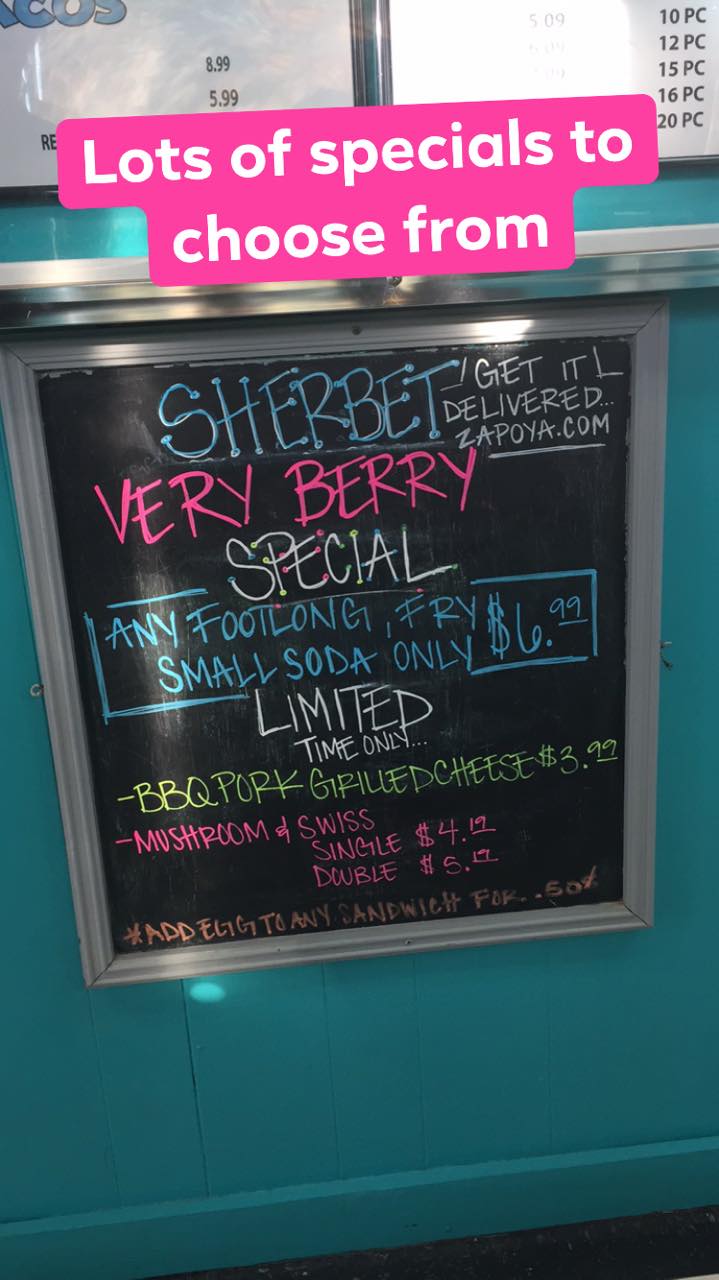 ACOS
8.99
5.99
RE
5.09
6.09
10 PC
12 PC
15 PC
16 PC
20 PC
Lots of specials to
choose from
SHERBET
GET IT
DELIVERED...
ZAPOYA.COM
VERY BERRY
SPECIAL
ANY FOOTLONG, FRY $6.99
SMALL SODA ONLY
LIMITED
TIME ONLY...
-BBQ PORK GRILLED CHEESE $3.99
-MUSHROOM & SWISS
SINGLE $4.19
DOUBLE $5.19
*ADD EGG TO ANY SANDWICH FOR .50¢